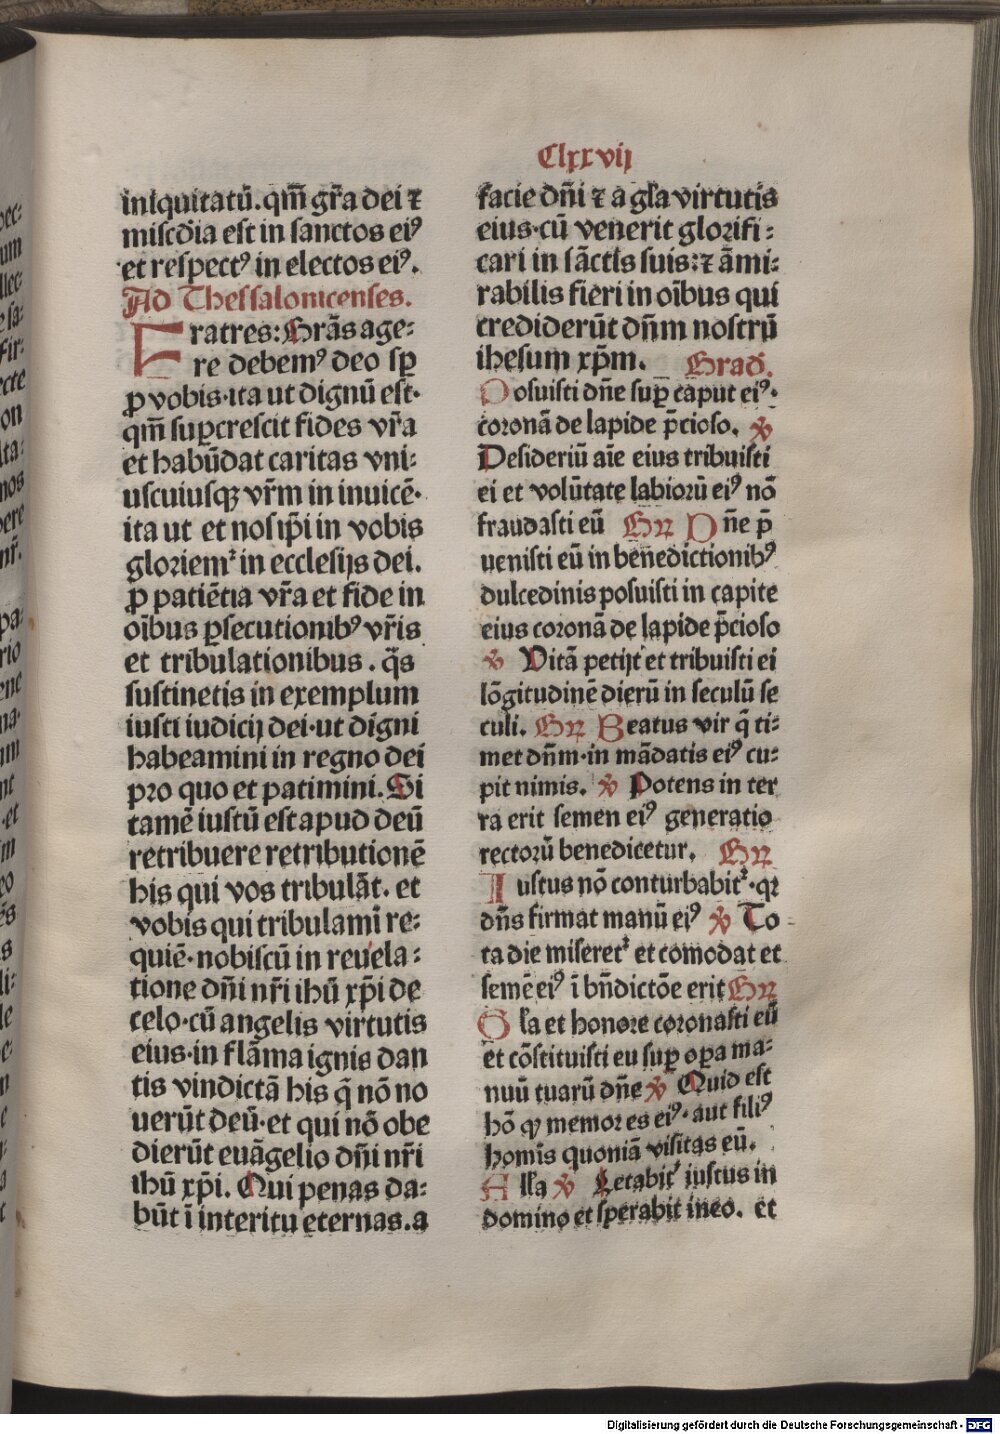 Clxxvij
iniquitatū.qm̄ gr̄a dei ⁊
miscd̄ia est in sanctos eiꝰ
et respectꝰ in electos eiꝰ.
Ad Thessalonicenses.
Fratres: Grās age⸗
re debemꝰ deo sꝑ
ꝓ vobis·ita ut dignū est·
qm̄ suꝑcrescit fides vr̄a
et habūdat caritas vni⸗
uscuiusqꝫ vr̄m in inuicē·
ita ut et nos ip̄i in vobis
gloriem᷑ in ecclesijs dei.
ꝓ patiētia vr̄a et fide in
oībus ꝑsecutionibꝰ vr̄is
et tribulationibus . q̄s
sustinetis in exemplum
iusti iudicij dei·ut digni
habeamini in regno dei
pro quo et patimini. Si
tamē iustū est apud deū
retribuere retributionē
his qui vos tribulāt. et
vobis qui tribulamī re⸗
quiē·nobiscū in reuela⸗
tione dn̄i nr̄i ihū xp̄i de
celo·cū angelis virtutis
eius·in flāma ignis dan
tis vindictā his q̄ nō no
uerūt deū·et qui nō obe
dierūt euāgelio dn̄i nr̄i
ihū xp̄i. Qui penas da⸗
būt ī interitu eternas. a
facie dn̄i ⁊ a gl̄a virtutis
eius·cū venerit glorifi⸗
cari in sāctis suis:⁊ āmi⸗
rabilis fieri in oībus qui
crediderūt dn̄m nostrū
ihesum xp̄m. Grad̄.
Posuisti dn̄e suꝑ caput eiꝰ·
coronā de lapide p̄cioso. ℣
Desideriū aīe eius tribuisti
ei et volūtate labiorū eiꝰ nō
fraudasti eū Gꝛ Dn̄e p̄
uenisti eū in benedictionibꝰ
dulcedinis posuisti in capite
eius coronā de lapide p̄cioso
℣ Vitā petijt et tribuisti ei
lōgitudinē dierū in seculū se
culi. Gꝛ Beatus vir q̄ ti⸗
met dn̄m·in mādatis eiꝰ cu⸗
pit nimis. ℣ Potens in ter
ra erit semen eiꝰ generatio
rectorū benedicetur. Gꝛ
Iustus nō conturbabit᷑·qꝛ
dn̄s firmat manū eiꝰ ℣ To
ta die miseret᷑ et comodat et
semē eiꝰ ī bn̄dictōe erit Gꝛ
Gl̄a et honore coronasti eū
et cōstituisti eu suꝑ oꝑa ma⸗
nuū tuarū dn̄e ℣ Quid est
hō ꝙ memor es eiꝰ·aut filiꝰ
homīs quoniā visitas eū.
All̄a ℣ Letabit᷑ iustus in
domino et sperabit in eo. et
Digitalisierung gefördert durch die Deutsche Forschungsgemeinschaft - DFG